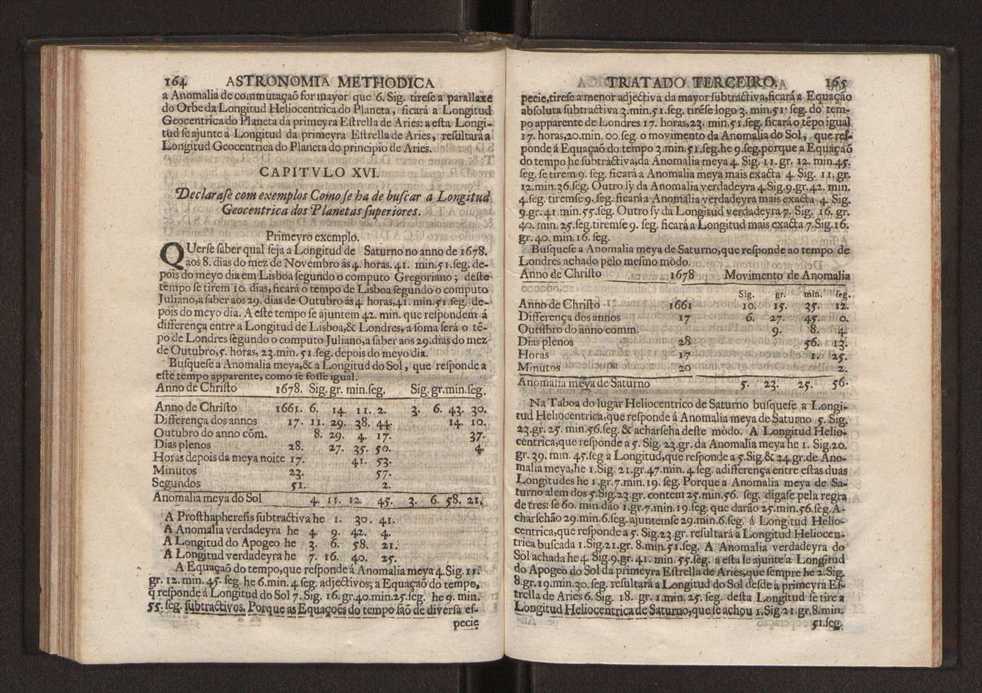 164 ASTRONOMIA METHODICA
a Anomalia de commutaçaõ for mayor que 6. Sig. tirese a parallaxe
do Orbe da Longitud Heliocentrica do Planeta, ficará a Longitud
Geocentrica do Planeta da primeyra Estrella de Aries: a esta Longi-
tud se ajunte a Longitud da primeyra Estrella de Aries, resultará a
Longitud Geocentrica do Planeta do principio de Aries.
CAPITVLO XVI.
Declarase com exemplos Como se ha de buscar a Longitud
Geocentrica dos Planetas superiores.
Primeyro exemplo.
QUerse saber qual seja a Longitud de Saturno no anno de 1678.
aos 8. dias do mez de Novembro ás 4. horas. 41. min. 51. seg. de-
pois do meyo dia em Lisboa segundo o computo Gregoriano; deste
tempo se tirem 10. dias, ficará o tempo de Lisboa segundo o computo
Juliano, a saber aos 29. dias de Outubro ás 4 horas, 41. min. 51. seg. de-
pois do meyo dia. A este tempo se ajuntem 42. min. que respondem á
differença entre a Longitud de Lisboa, & Londres, a soma será o tẽ-
po de Londres segundo o computo Juliano, a saber aos 29. dias do mez
de Outubro, 5. horas, 23. min. 51. seg. depois do meyo dia.
Busquese a Anomalia meya, & a Longitud do Sol, que responde a
este tempo apparente, como se fosse igual.
Anno de Christo 1678. Sig. gr. min. seg. Sig, gr. min. seg.
Anno de Christo 1661. 6. 14. 11. 2. 3. 6. 43. 30.
Differença dos annos 17. 11. 29. 38. 44. 14. 10.
Outubro do anno cõm. 8. 29. 4. 17. 37.
Dias plenos 28. 27. 35. 50. 4.
Horas depois da meya noite 17. 41. 53.
Minutos 23. 57.
Segundos 51. 2.
Anomalia meya do Sol 4. 11. 12. 45. 3. 6. 58. 21.
A Prosthapheresis subtractiva he 1. 30. 41.
A Anomalia verdadeyra he 4. 9. 42. 4.
A Longitud do Apogeo he 3. 6. 58. 21.
A Longitud verdadeyra he 7. 16. 40. 25.
A Equaçaõ do tempo, que responde á Anomalia meya 4. Sig. 11.
gr. 12. min. 45. seg. he 6. min. 4. seg. adjectivos; a Equaçaõ do tempo,
q̃ responde á Longitud do Sol 7. Sig. 16. gr. 40. min. 25. seg. he 9. min.
55. seg. subtractivos. Porque as Equações do tempo saõ de diversa es-
pecie
TRATADO TERCEIRO. 165
pecie, tirese a menor adjectiva da mayor subtractiva, ficará a Equaçaõ
absoluta subtractiva 3. min. 51. seg. tirese logo 3. min. 51. seg. do tem-
po apparente de Londres 17. horas, 23. min. 51. seg. ficará o tẽpo igual
17. horas, 20. min. 00. seg. o movimento da Anomalia do Sol, que res-
ponde á Equaçaõ do tempo 3. min. 51. seg. he 9. seg. porque a Equaçaõ
do tempo he subtractiva, da Anomalia meya 4. Sig. 11. gr. 12. min. 45.
seg. se tirem 9. seg. ficará a Anomalia meya mais exacta 4. Sig. 11. gr.
12. min. 36. seg. Outro sy da Anomalia verdadeyra 4. Sig. 9. gr. 42. min.
4. seg. tiremse 9. seg. ficará a Anomalia verdadeyra mais exacta 4. Sig.
9. gr. 41. min. 55. seg. Outro sy da Longitud verdadeyra 7. Sig. 16. gr.
40. min. 25. seg. tiremse 9. seg. ficará a Longitud mais exacta 7. Sig. 16.
gr. 40. min. 16. seg.
Busquese a Anomalia meya de Saturno, que responde ao tempo de
Londres achado pelo mesmo modo.
Anno de Christo 1678 Movimento de Anomalia
Sig. gr. min. seg.
Anno de Christo 1661 10. 15. 35. 12.
Differença dos annos 17 6. 27. 45. 0.
Outubro do anno comm. 9. 8. 4.
Dias plenos 28 56. 13.
Horas 17 1. 25.
Minutos 20 2.
Anomalia meya de Saturno 5. 23. 25. 56.
Na Taboa do lugar Heliocentrico de Saturno busquese a Longi-
tud Heliocentrica, que responde á Anomalia meya de Saturno 5. Sig.
23. gr. 25. min. 56. seg. & acharseha deste modo. A Longitud Helio-
centrica, que responde a 5. Sig. 23. gr. da Anomalia meya he 1. Sig. 20.
gr. 39. min. 45. seg a Longitud, que responde a 5. Sig. & 24. gr. de Ano-
malia meya, he 1. Sig. 21. gr. 47. min. 4. seg. a differença entre estas duas
Longitudes he 1. gr. 7. min. 19. seg. Porque a Anomalia meya de Sa-
turno alem dos 5. Sig. 23 gr. contem 25. min. 56. seg. digase pela regra
de tres: se 60. min. daõ 1. gr. 7. min. 19. seg. que daráõ 25. min. 56. seg. A-
charsehão 29. min. 6. seg. ajuntemse 29. min. 6. seg. á Longitud Helio-
centrica, que responde a 5. Sig. 23 gr. resultará a Longitud Heliocen-
trica buscada 1. Sig. 21. gr. 8. min. 51. seg. A Anomalia verdadeyra do
Sol achada he 4. Sig. 9. gr. 41. min. 55. seg. a esta se ajunte a Longitud
do Apogeo do Sol da primeyra Estrella de Aries, que sempre he 2. Sig.
8. gr. 19. min. 30. seg. resultará a Longitud do Sol desde a primeyra Es-
trella de Aries 6. Sig. 18. gr. 1. min. 25. seg. desta Longitud se tire a
Longitud Heliocentrica de Saturno, que se achou 1. Sig. 21. gr. 8. min.
51. seg.